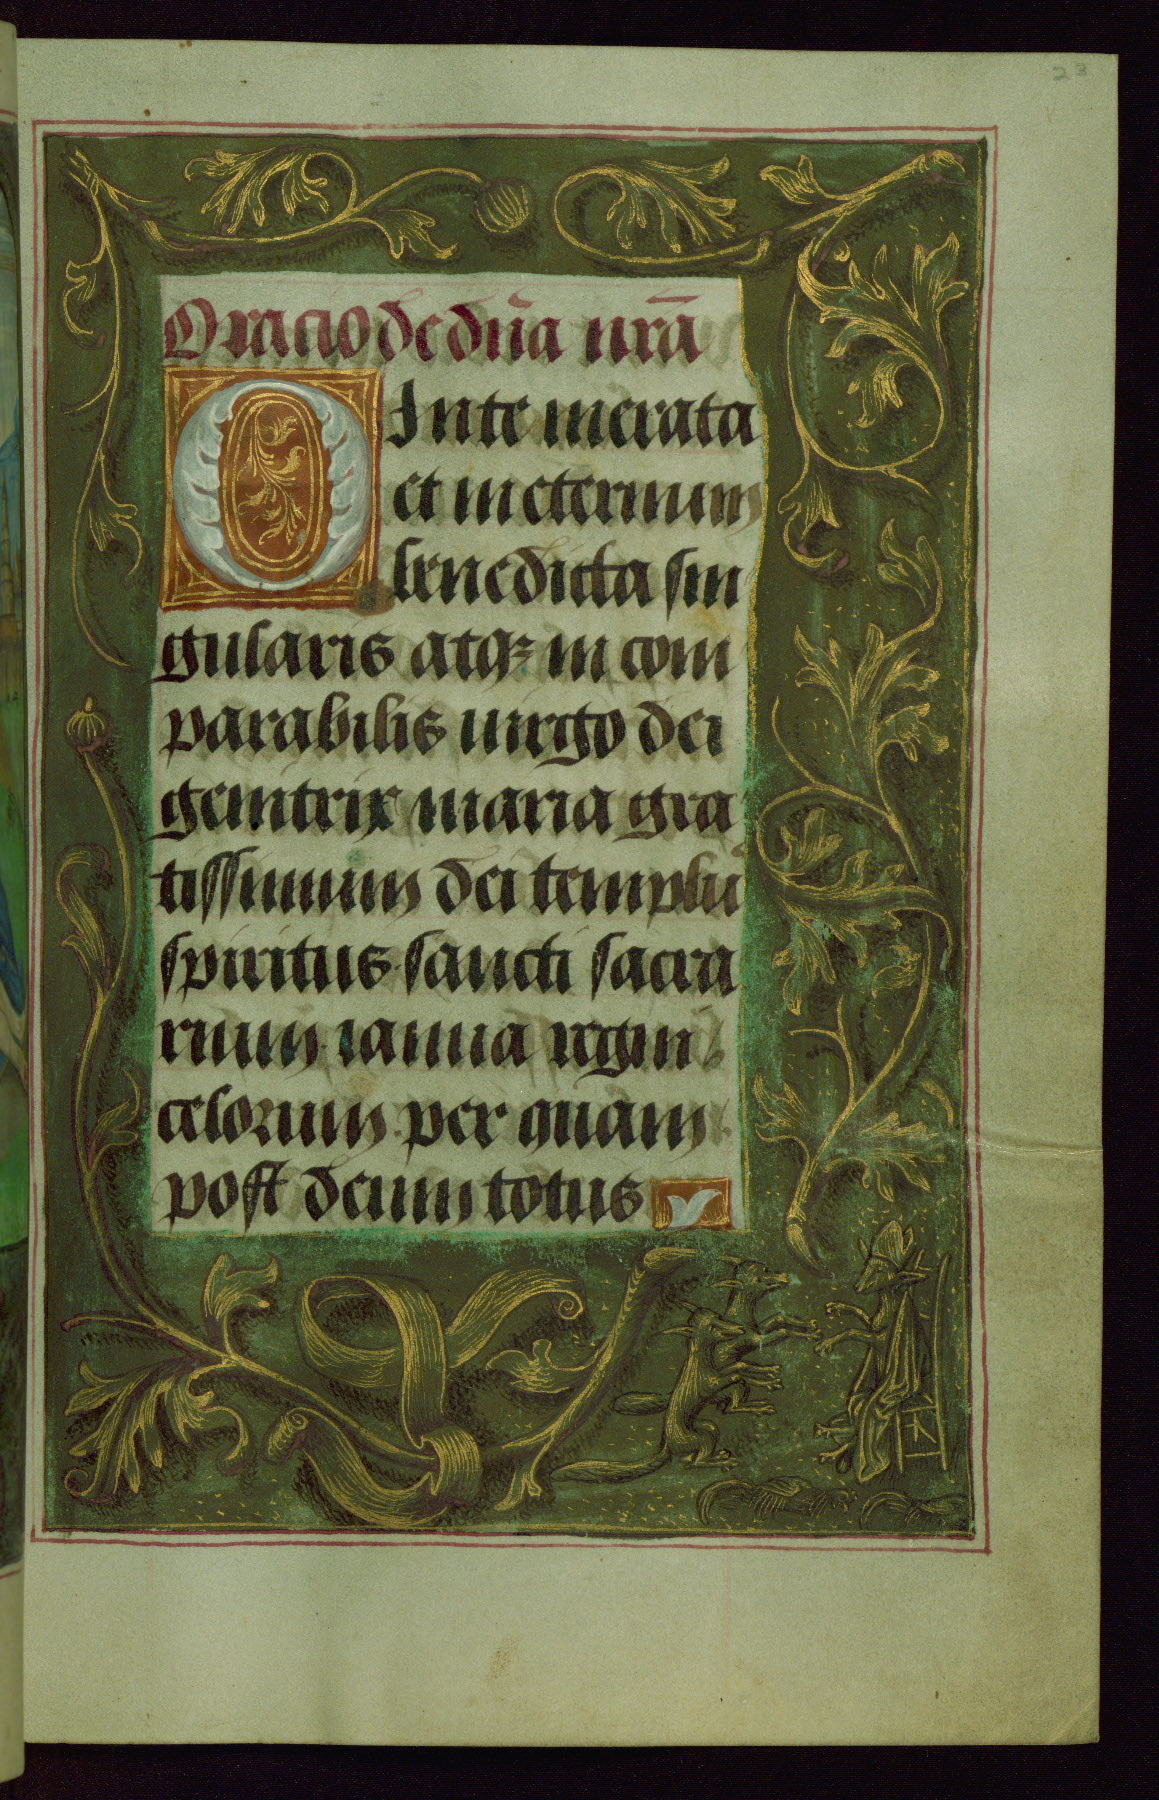 23
Oracio de dn̄a nr̄a
O Inte merata
et in eternum
benedicta sin
gularis atqꝫ in com
parabilis uirgo dei
genitrix maria gra
tissimum dei templū
spiritus sancti sacra
rium ianua regni
celorum per quam
post deum totus